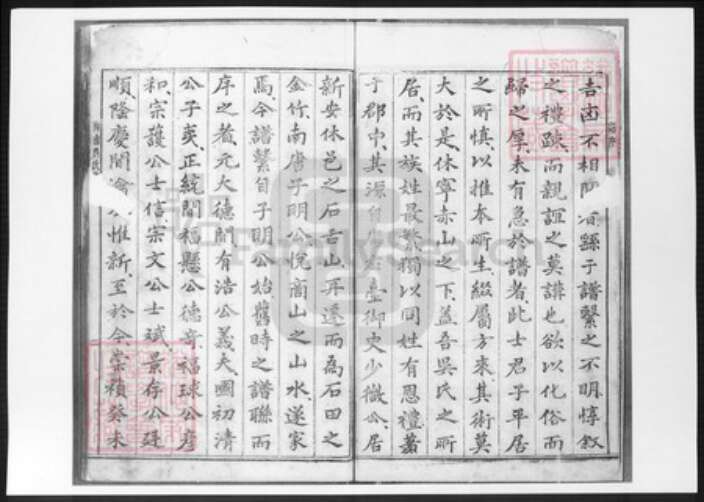 吉凶不相 繇于譜繫之不明惇叙
之禮踈而親誼之莫講也欲以化俗而
歸之厚未有急於譜者此士君子平居
之所慎以推本所生綴屬方來其術莫
大於是休寧赤山之下蓋吾吳氏之所
居而其族姓最繁獨以同姓有恩禮著
于郡中其源自 臺御史少微公居
新安休邑之石舌山再遷而為石田之
金竹南唐子明公悅商山之山水遂家
焉今譜繫自子明公始舊時之譜聯而
序之者元大德間有浩公義夫國初清
公子奕正統間福懸公德竒福球公彦
和宗護公士信宗文公士斌景存公廷
順隆慶間 惟新至於今崇禎癸未
FamilySearch